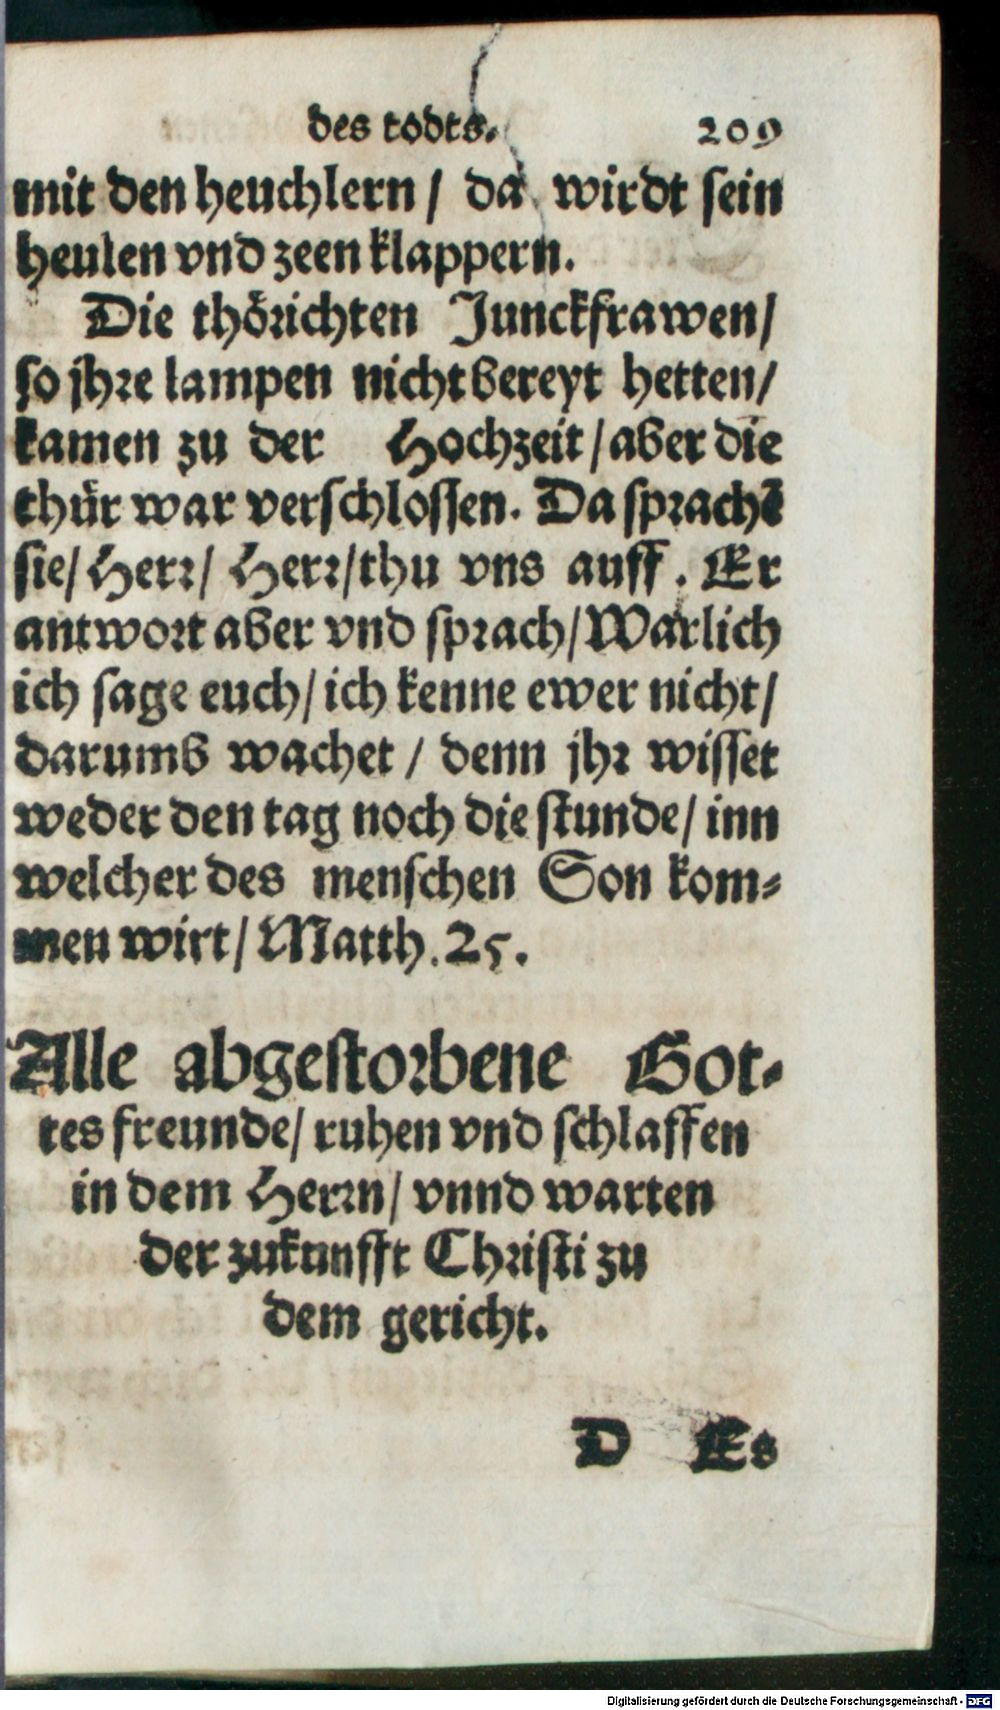 des todts. 209
mit den heuchlern / da wirdt sein
heulen vnd zeen klappern.
Die thörichten Junckfrawen/
so jhre lampen nicht bereyt hetten/
kamen zu der Hochzeit / aber die
thür war verschlossen. Da sprachē
sie/ Herr/ Herr/ thu vns auff. Er
antwort aber vnd sprach/ Warlich
ich sage euch/ ich kenne ewer nicht/
darumb wachet / denn jhr wisset
weder den tag noch die stunde/ inn
welcher des menschen Son kom-
men wirt/ Matth. 25.
Alle abgestorbene Got-
tes freunde/ ruhen vnd schlaffen
in dem Herrn/ vnnd warten
der zukunfft Christi zu
dem gericht.
D Es
Digitalisierung gefördert durch die Deutsche Forschungsgemeinschaft - DFG